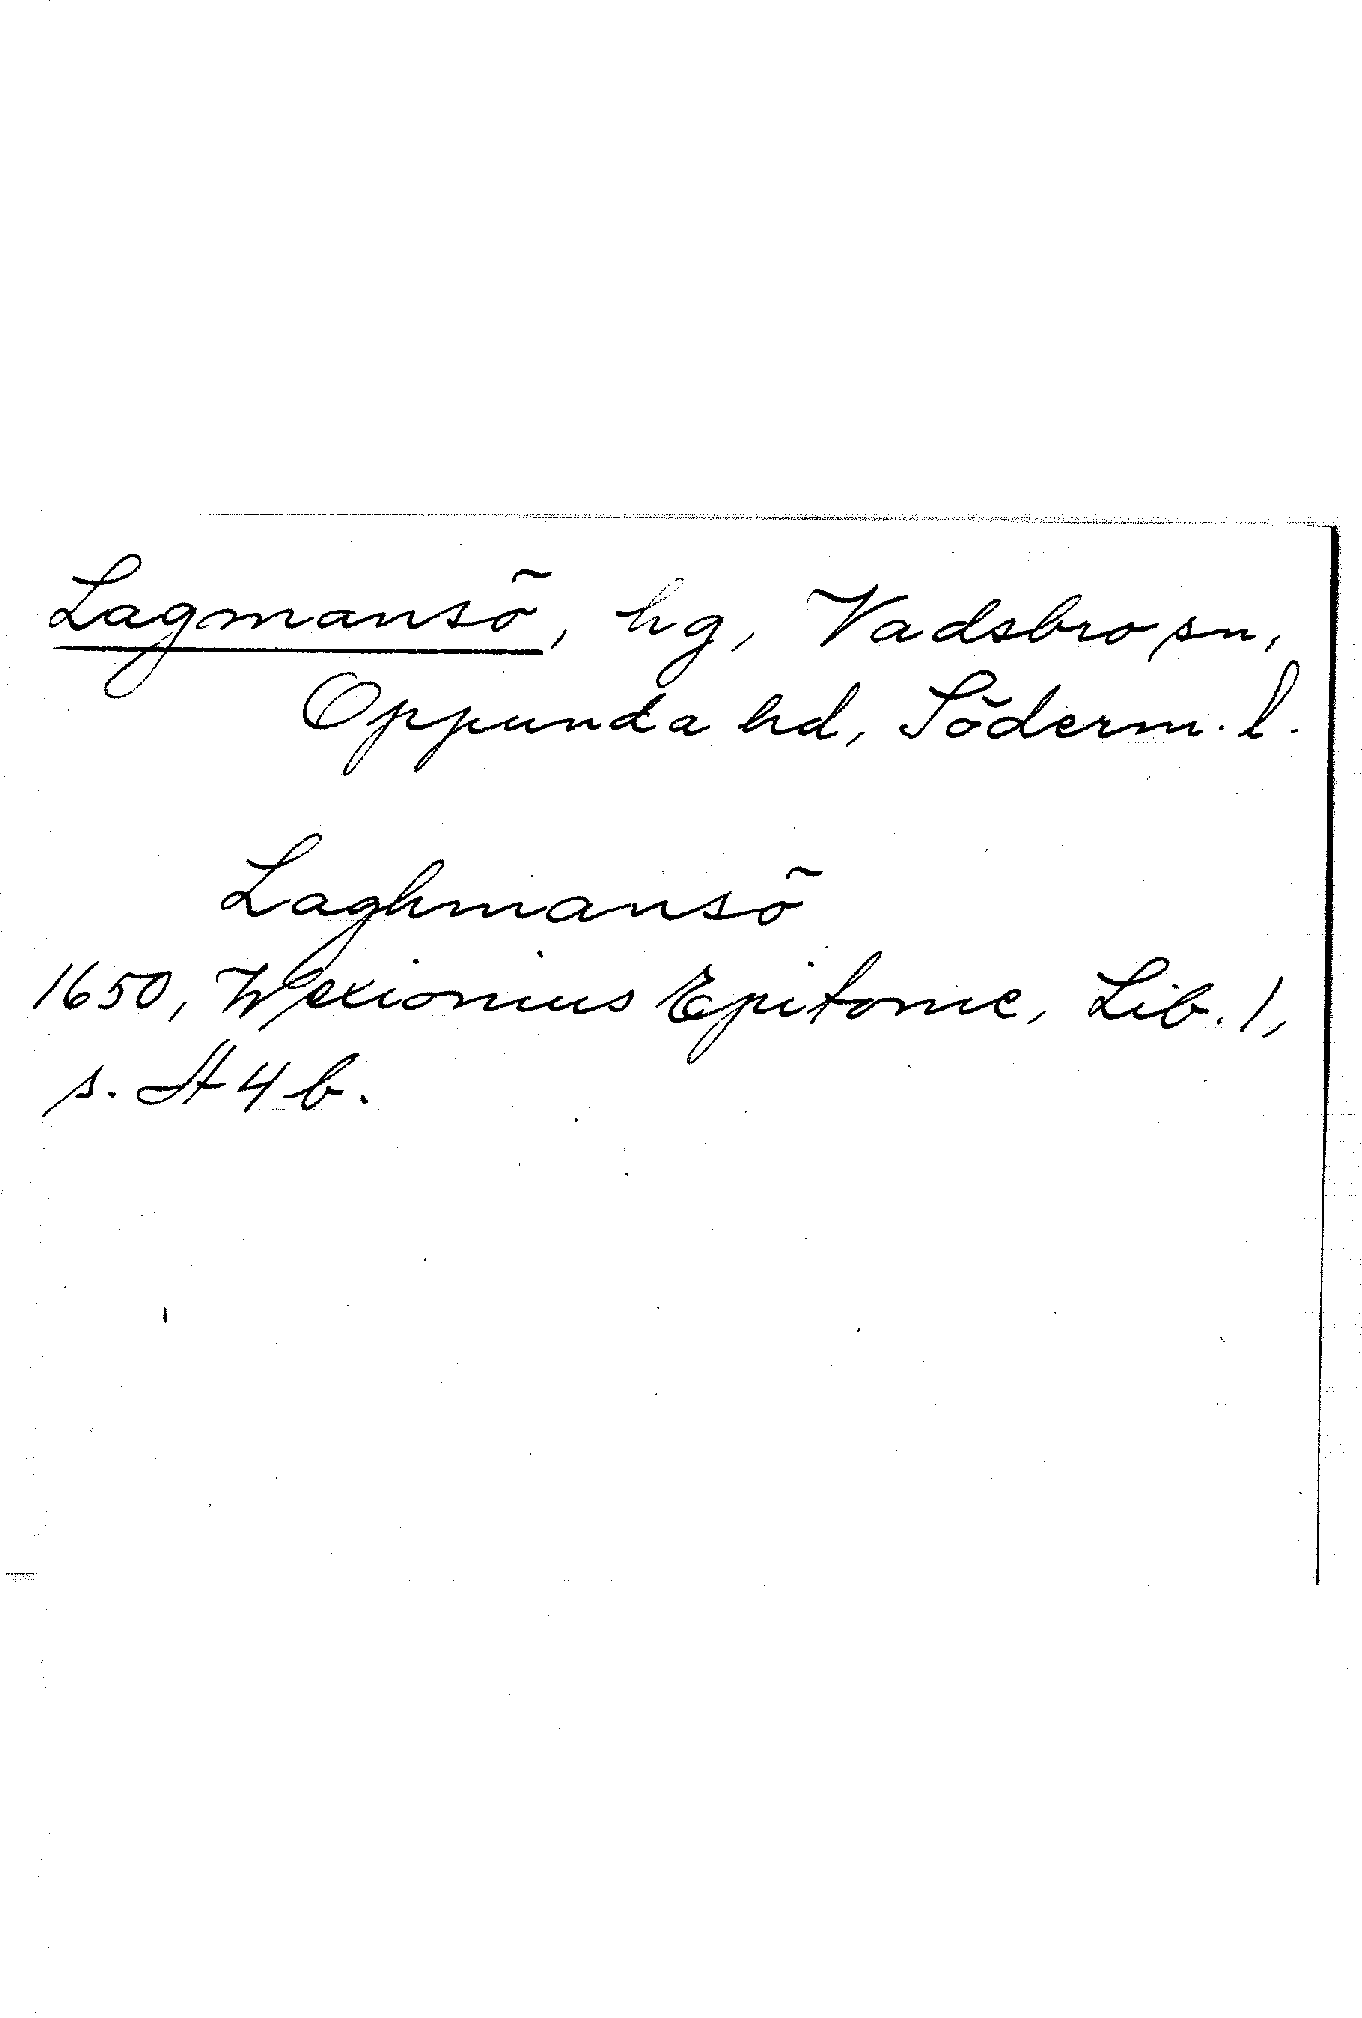 Lagmansö, hg, Vadsbro sn,
Oppunda hd, Söderm. l.
Laghmansö
1650, Wexionius Epitome, Lib. 1,
s. A 4 b.